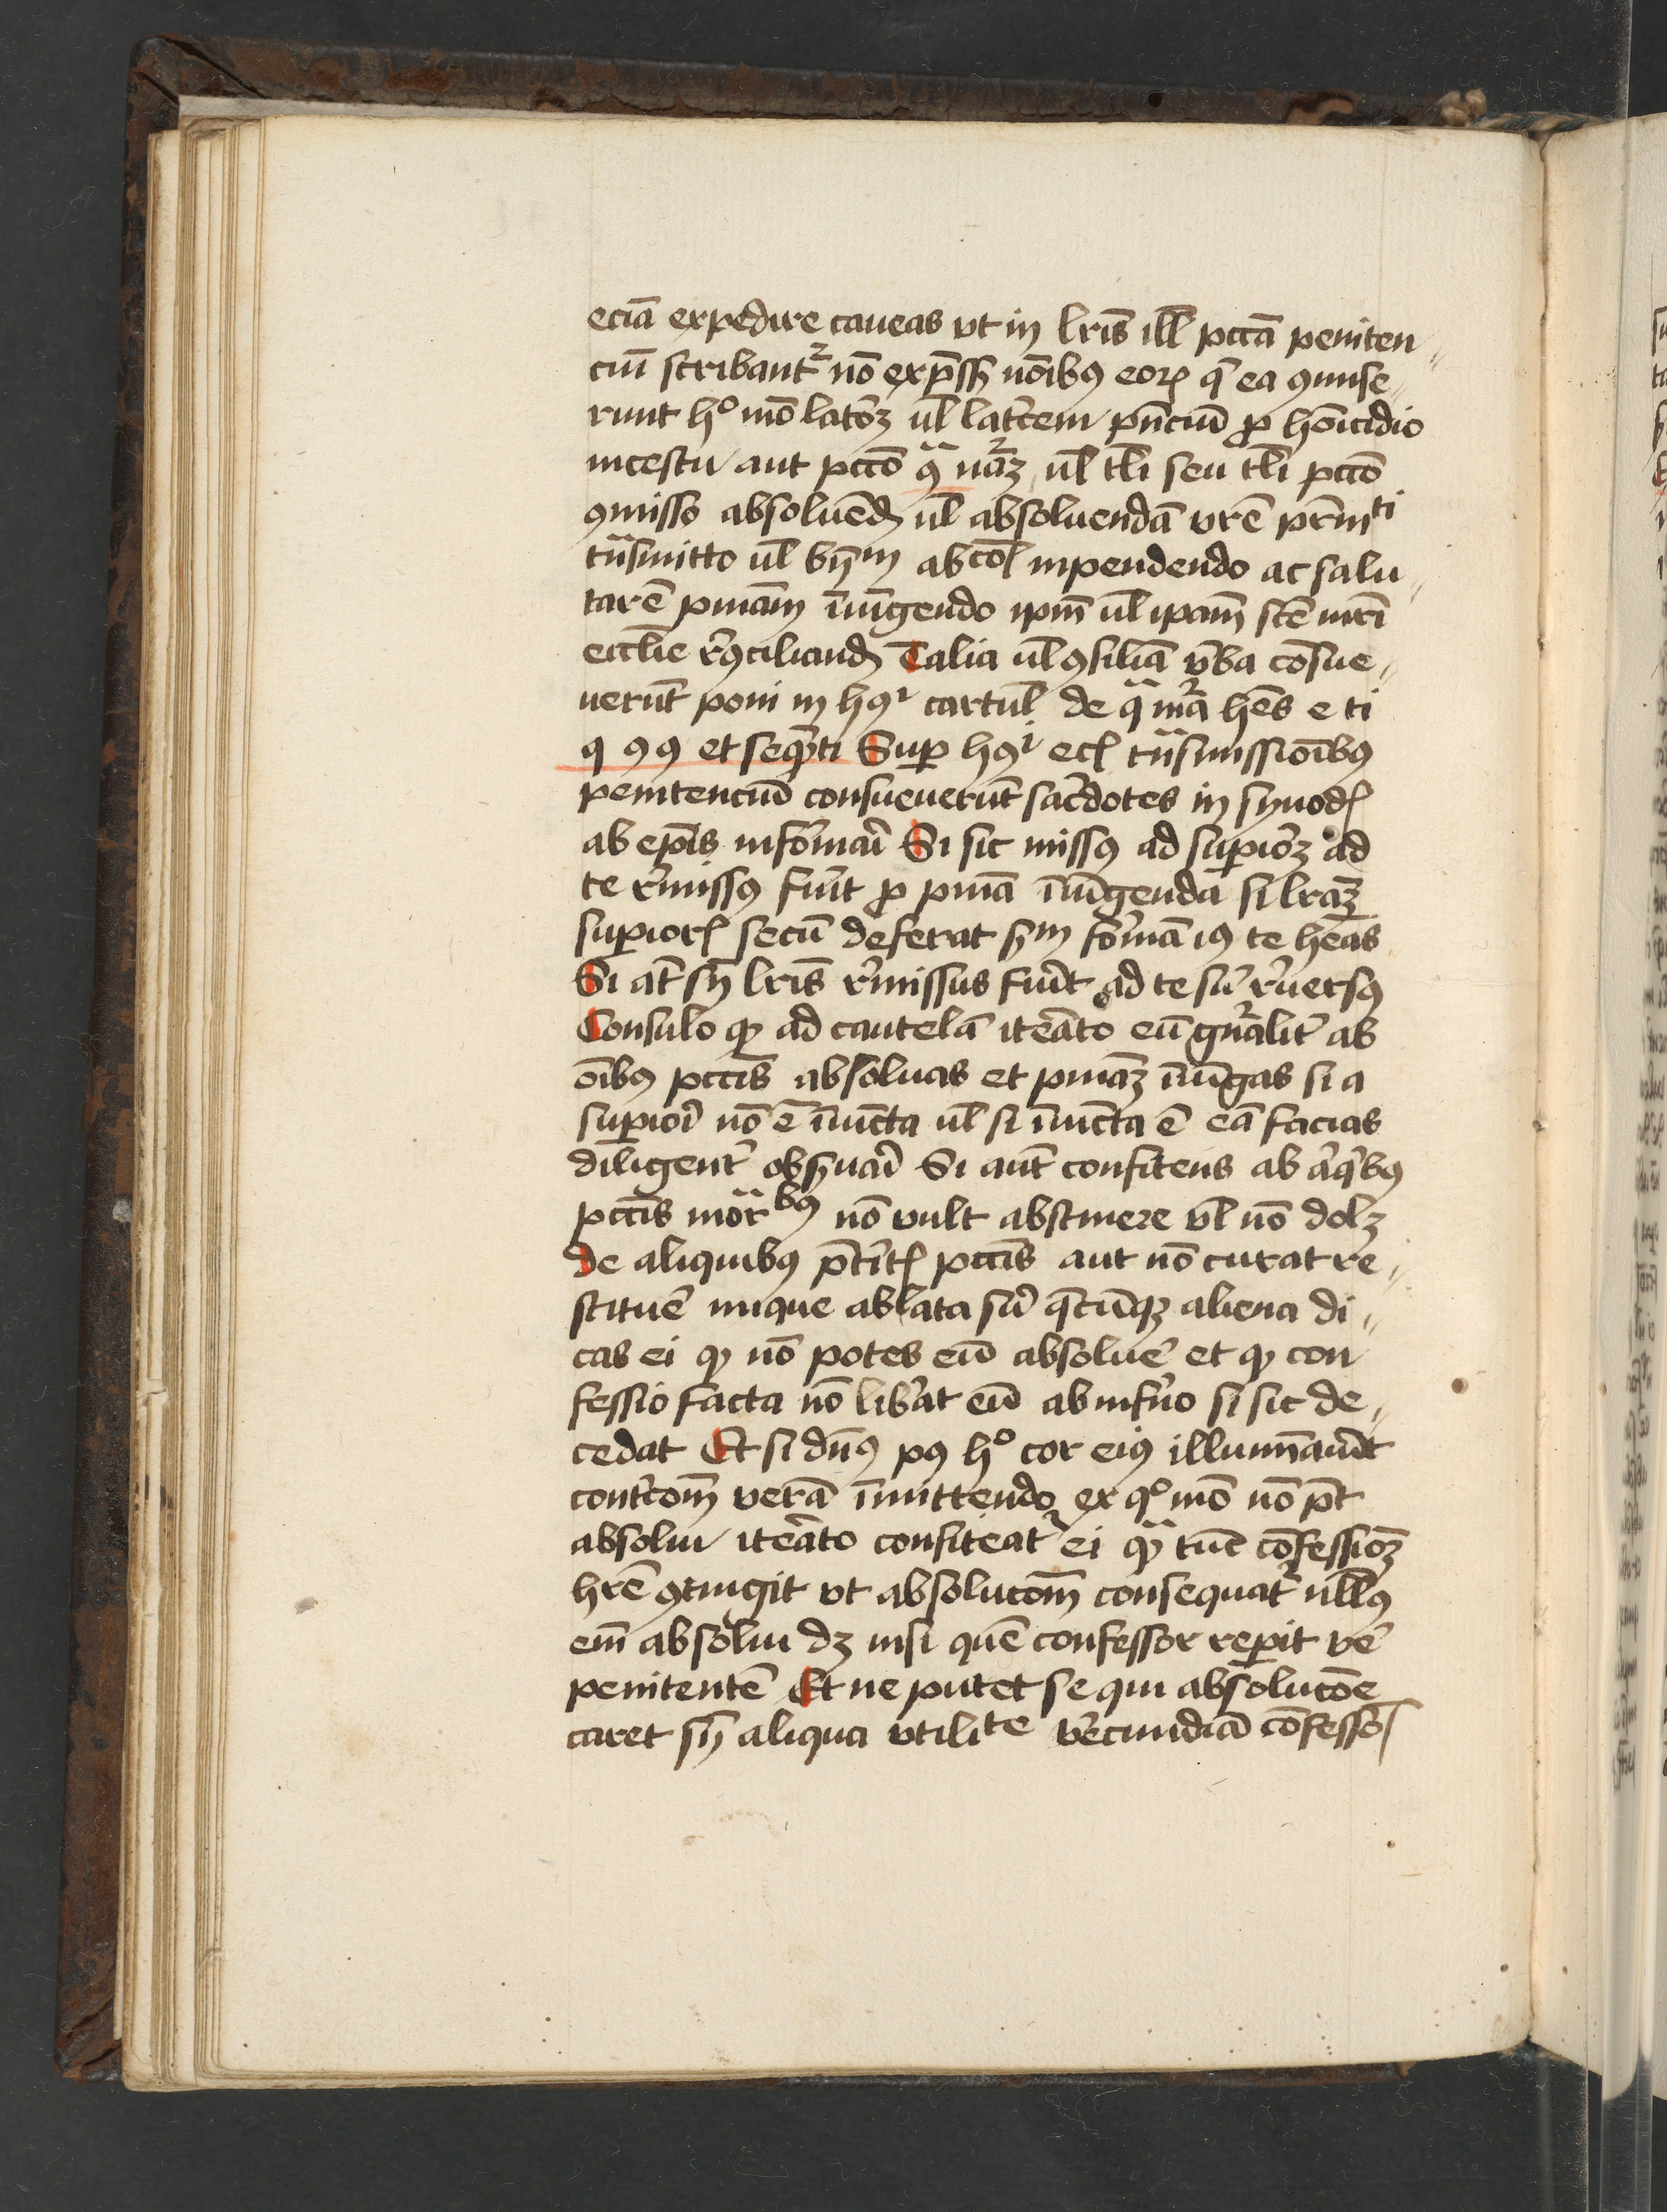 eciā expedire caueas vt in lr̄is ill̄ pctā peniten„
ciū scribant᷑ nō exp̄ss nōibꝯ eoꝝ q̄ ea ꝯmise„
runt h° mō latoꝝ ul̄ lat'cem pn̄ciū ꝓ homicidio
incestu aut pctō ꝯᷓ nāꝫ ul̄ tl̄i seu tl̄i pctō
ꝯmisso absoluēd ul̄ absoluendā vr̄e pr̄niti
tͣsmitto ul̄ abcōl inpendendo ac salu„
tarē pniam̄ īiūgendo ipm̄ ul̄ ipam̄ scē mr̄i
eccl̄ie r'ꝯciliand Talia ul̄ ꝯsilīa v'ba cōsue„
uerūt poni in hꝯi cartul̄ de qᷓ mͣa hēs e ti
q 99 et seq̄nti Suꝑ hꝯi ecl̄ tͣsmissiōibꝯ
penitenciū consueuerūt sac'dotes in synodꝭ
ab ep̄is informai' Si sic missꝯ ad supioꝝ ad
te r'missꝯ fūit ꝓ pniā īiūgenda si lrāꝫ
superiorꝭ secū deferat s'm formā iꝯ te hēas
Si at̄ sn̄ lr̄is r'missus fūit ad te sū r'uersꝯ
Consulo ꝙ ad cautelā it'ato eū gn̄alit' ab
oībꝯ pctīs absoluas et pniāꝫ īiūgas si a
superioī nō ē īiūcta ul̄ si īiūcta ē eā facias
diligent' obs'uai' Si aut̄ confitens ab aͥqͥbꝯ
pctīs morͣbꝯ nō vult abstinere vl̄ nō dolꝫ
de aliquibꝯ p̄t'itꝭ pctīs aut nō curat re„
stitue' inique ablata sū q̄cūqꝫ aliena di„
cas ei ꝙ nō potes eū absolue' et ꝙ con
fessio facta nō lib'at eū ab inf'no si sic de„
cedat Et si dn̄ꝯ pꝯ h° cor eiꝯ illumīau'it
cont'com̄ verā īmittendo ex q° mō nō pt̄
absolui it'ato confiteat᷑ ei ꝙᷓ tūc cōfessioꝫ
hr̄e ꝯtingit vt absolucom̄ consequat᷑ ull̄ꝯ
em̄ absolui dꝫ nisi quē confessor reperit ve'
penitentē Et ne putet se qui absolucōe
caret sn̄ aliqua vtilite v'ecundiā cōfessoꝭ